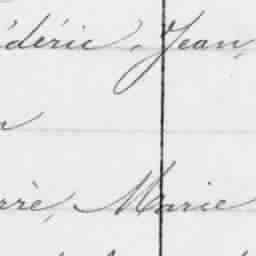 édéric, Jean,
n
rrè, Marie